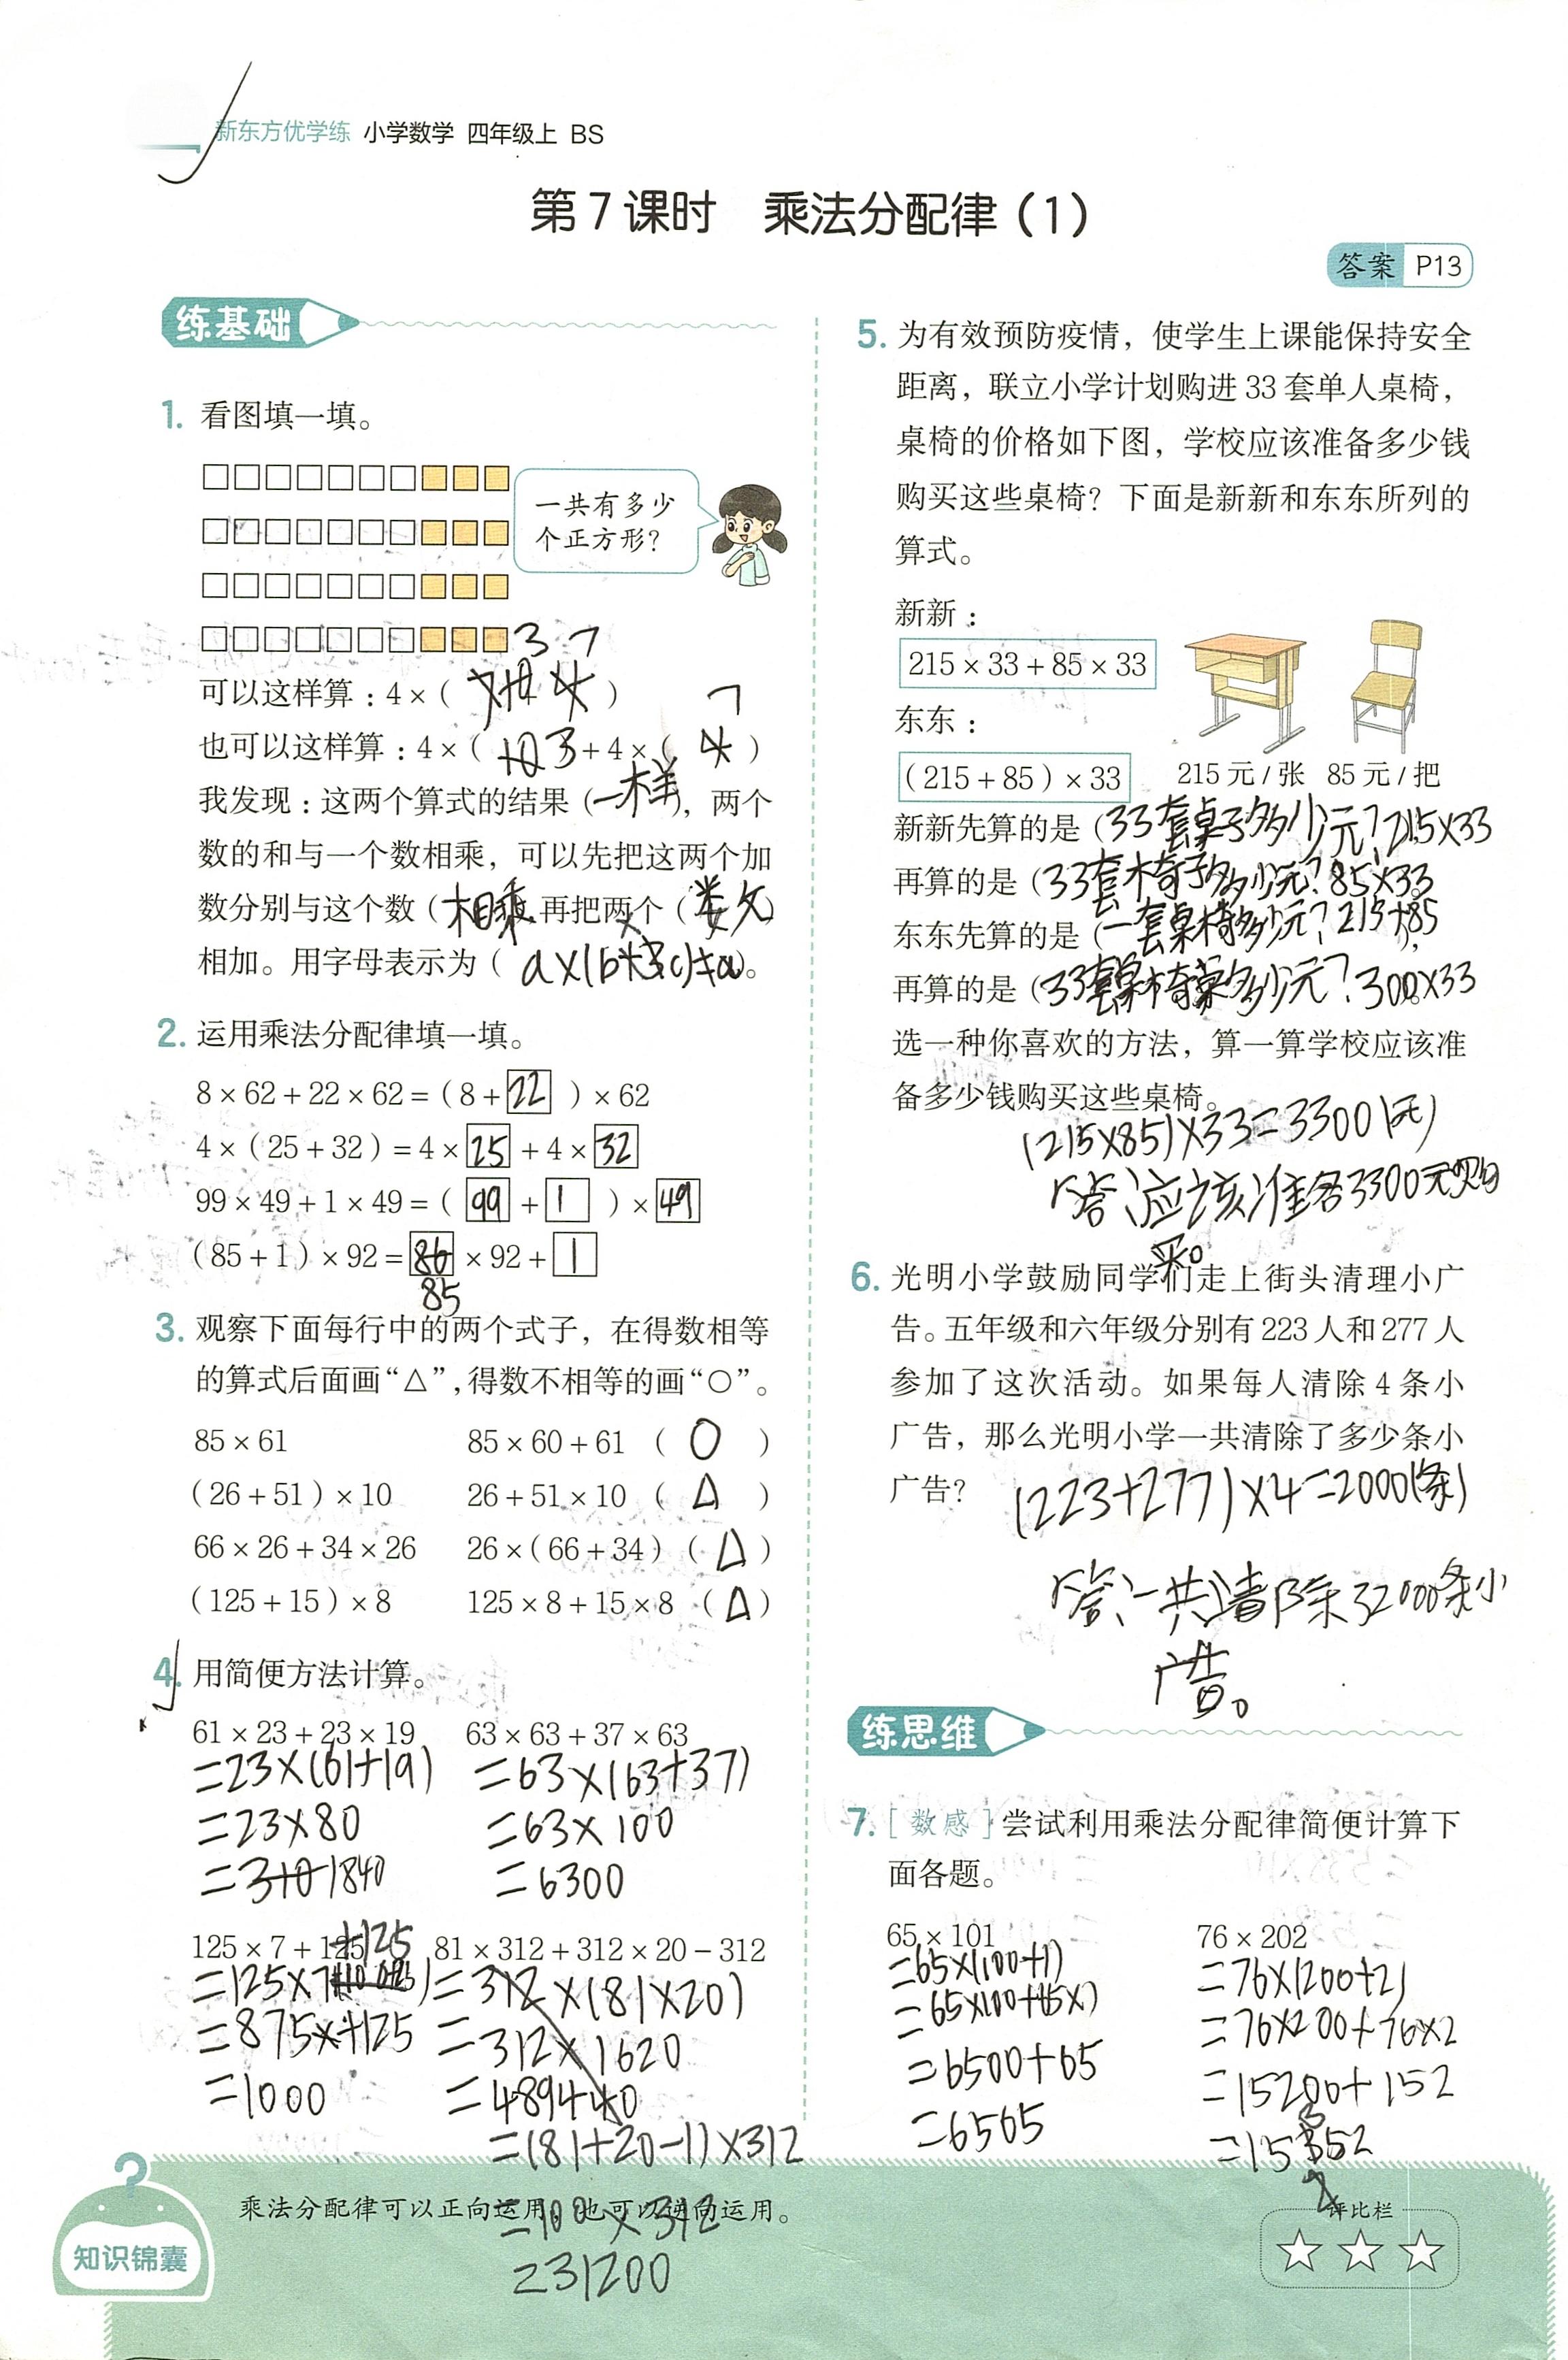 新东方优学练 小学数学 四年级上 BS
第7课时 乘法分配律(1)
答案 P13
练基础
1. 看图填一填。
一共有多少
个正方形?
3 7
可以这样算:4×( )
7
也可以这样算:4×( 3+4×( )
我发现:这两个算式的结果(一样),两个
数的和与一个数相乘,可以先把这两个加
数分别与这个数(相乘 再把两个( )
相加。用字母表示为( a×(b+ )。
2. 运用乘法分配律填一填。
8×62+22×62=(8+22)×62
4×(25+32)=4×25+4×32
99×49+1×49=(99+1)×49
(85+1)×92=86×92+1
85
3. 观察下面每行中的两个式子,在得数相等
的算式后面画“△”,得数不相等的画“○”。
85×61 85×60+61 (○)
(26+51)×10 26+51×10 (△)
66×26+34×26 26×(66+34) (△)
(125+15)×8 125×8+15×8 (△)
4. 用简便方法计算。
61×23+23×19 63×63+37×63
=23×(61+19) =63×(63+37)
=23×80 =63×100
=1840 =6300
125×7+125 81×312+312×20-312
=125×7+125 =312×(81×20)
=875+125 =312×1620
=1000
=(81+20-1)×312
=100×312
=31200
5. 为有效预防疫情,使学生上课能保持安全
距离,联立小学计划购进33套单人桌椅,
桌椅的价格如下图,学校应该准备多少钱
购买这些桌椅?下面是新新和东东所列的
算式。
新新:
215×33+85×33
东东:
(215+85)×33
215元/张 85元/把
新新先算的是(33套桌子多少元?215×33
再算的是(33套椅子多少元?85×33
东东先算的是(一套桌椅多少元?215+85),
再算的是(33套桌椅多少元?300×33
选一种你喜欢的方法,算一算学校应该准
备多少钱购买这些桌椅。
(215×85)×33=3300(元)
答:应该准备3300元购
买。
6. 光明小学鼓励同学们走上街头清理小广
告。五年级和六年级分别有223人和277人
参加了这次活动。如果每人清除4条小
广告,那么光明小学一共清除了多少条小
广告?
(223+277)×4=2000(条)
答:一共清除了2000条小
广告。
练思维
7. [数感]尝试利用乘法分配律简便计算下
面各题。
65×101 76×202
=65×(100+1) =76×(200+2)
=65×100+65×1 =76×200+76×2
=6500+65 =15200+152
=6565 =15352
知识锦囊
乘法分配律可以正向运用,也可以逆向运用。
评比栏